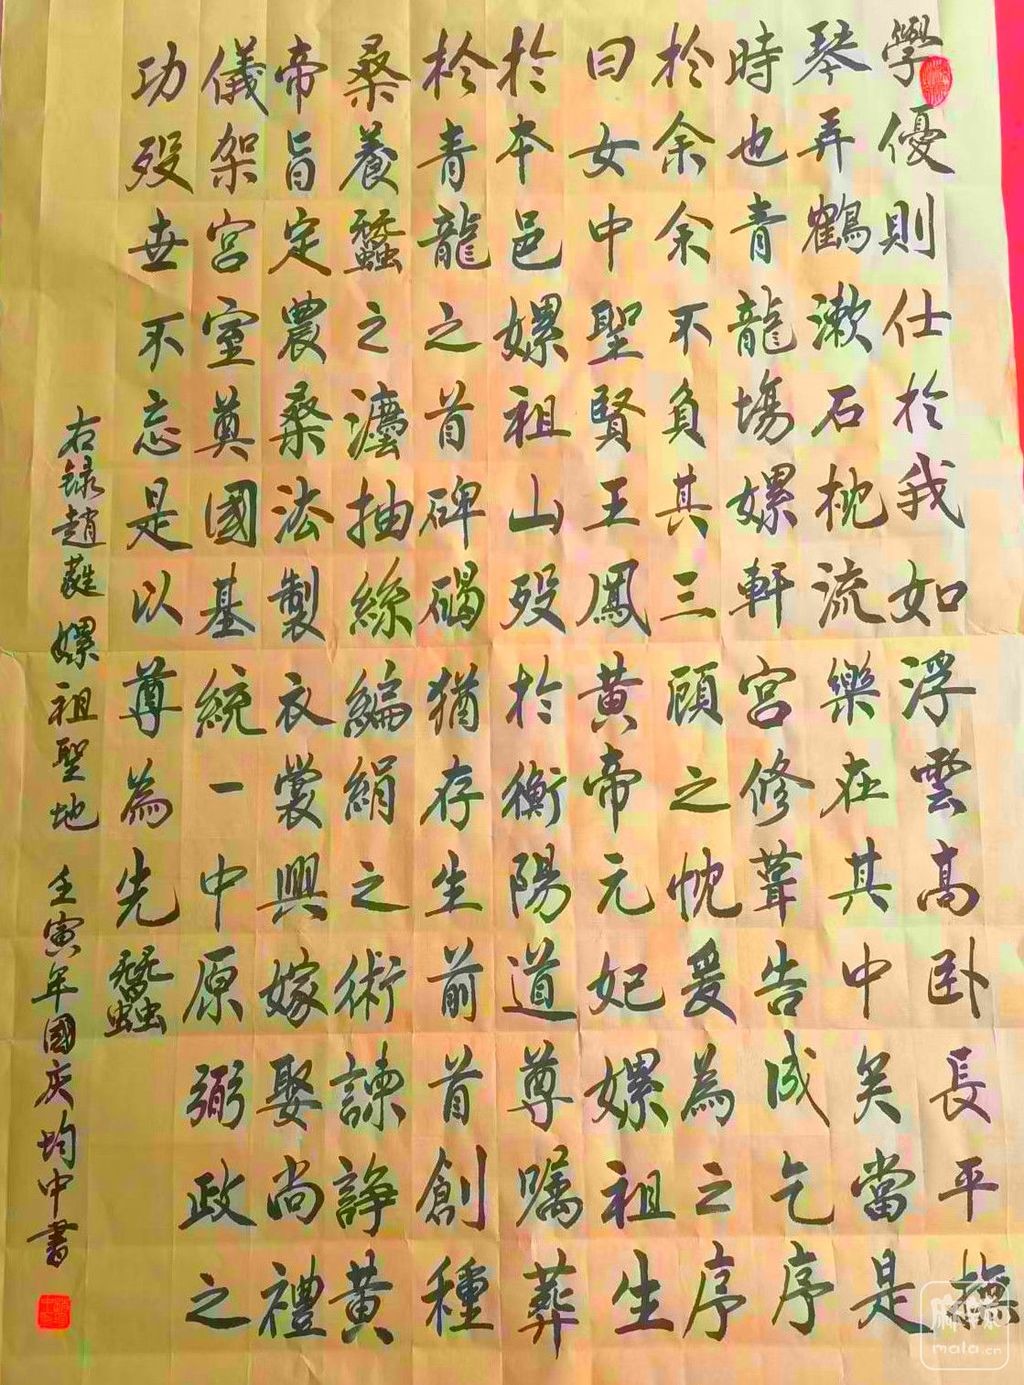 學優則仕於我如浮雲高卧長平撫
琴弄鶴漱石枕流樂在其中矣當是
時也青龍場嫘軒宮修葺告成乞序
於余余不負其三顧之忱爰為之序
曰女中聖賢王鳳黃帝元妃嫘祖生
於本邑嫘祖山歿於衡陽道尊囑葬
於青龍之首碑碣猶存生前首創種
桑養蠶之灋抽絲編絹之術諫諍黃
帝旨定農桑法製衣裳興嫁娶尚禮
儀架宮室奠國基統一中原弼政之
功歿世不忘是以尊為先蠶
右錄趙蕤嫘祖聖地 壬寅年國庆均中書
麻辣
mala.cn